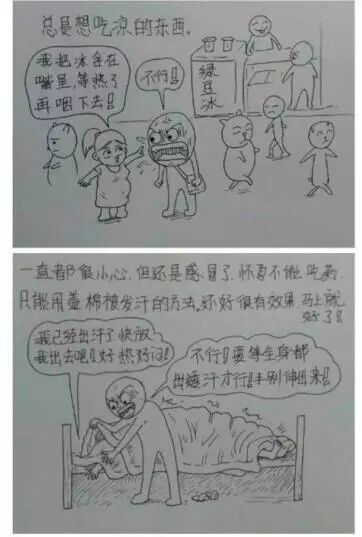 总是想吃凉的东西.
我把冰含在
嘴里,等热了
再咽下去!!
不行!!
绿
豆
冰
一直都很小心.但还是感冒了.怀孕不能吃药.
只能用盖棉被发汗的方法,还好很有效果.马上就
好了!!
我已经出汗了快放
我出去吧!!好热好闷!!
不行!!要等全身都
出透汗才行!!手别伸出来!!